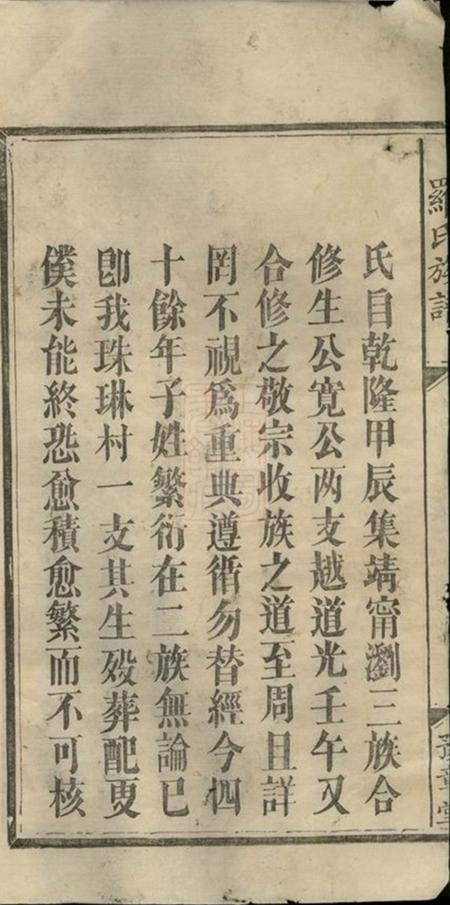 羅氏族譜
豫章堂
氏自乾隆甲辰集靖甯瀏三族合
修生公寬公两支越道光壬午又
合修之敬宗收族之道至周且詳
罔不視爲重典遵循勿替經今四
十餘年子姓繁衍在二族無論已
卽我珠琳村一支其生殁葬配更
僕未能終恐愈積愈繁而不可核